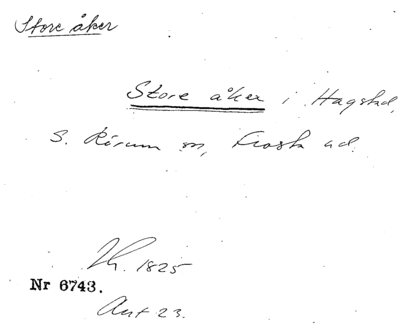 Store åker
Store åker i Hagstad,
S. Rörum sn, Frosta hd.
Lh. 1825
Nr 6743.
Akt 23.